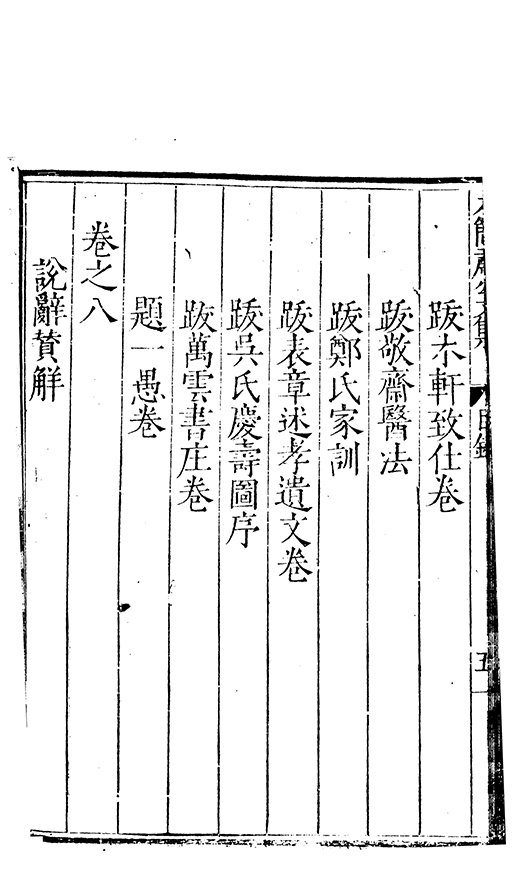 目錄
五
跋木軒致仕卷
跋敬齋醫法
跋鄭氏家訓
跋表章述孝遺文卷
跋吳氏慶壽圖序
跋萬雲書庄卷
題一愚卷
卷之八
說辭賛觧